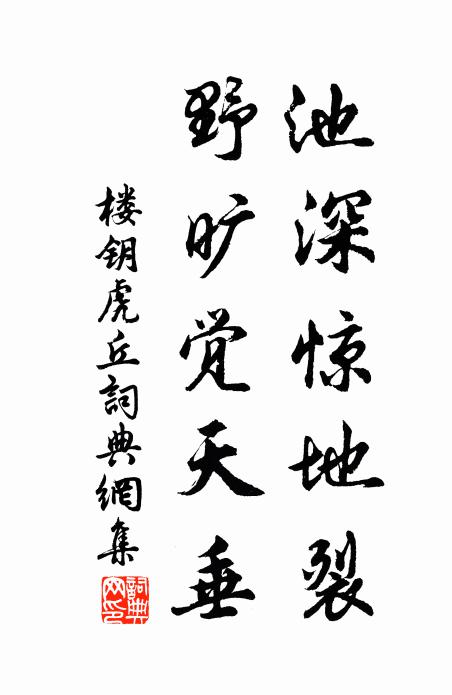 池深惊地裂
野旷觉天垂
楼钥虎丘詞典網集
詞典網印